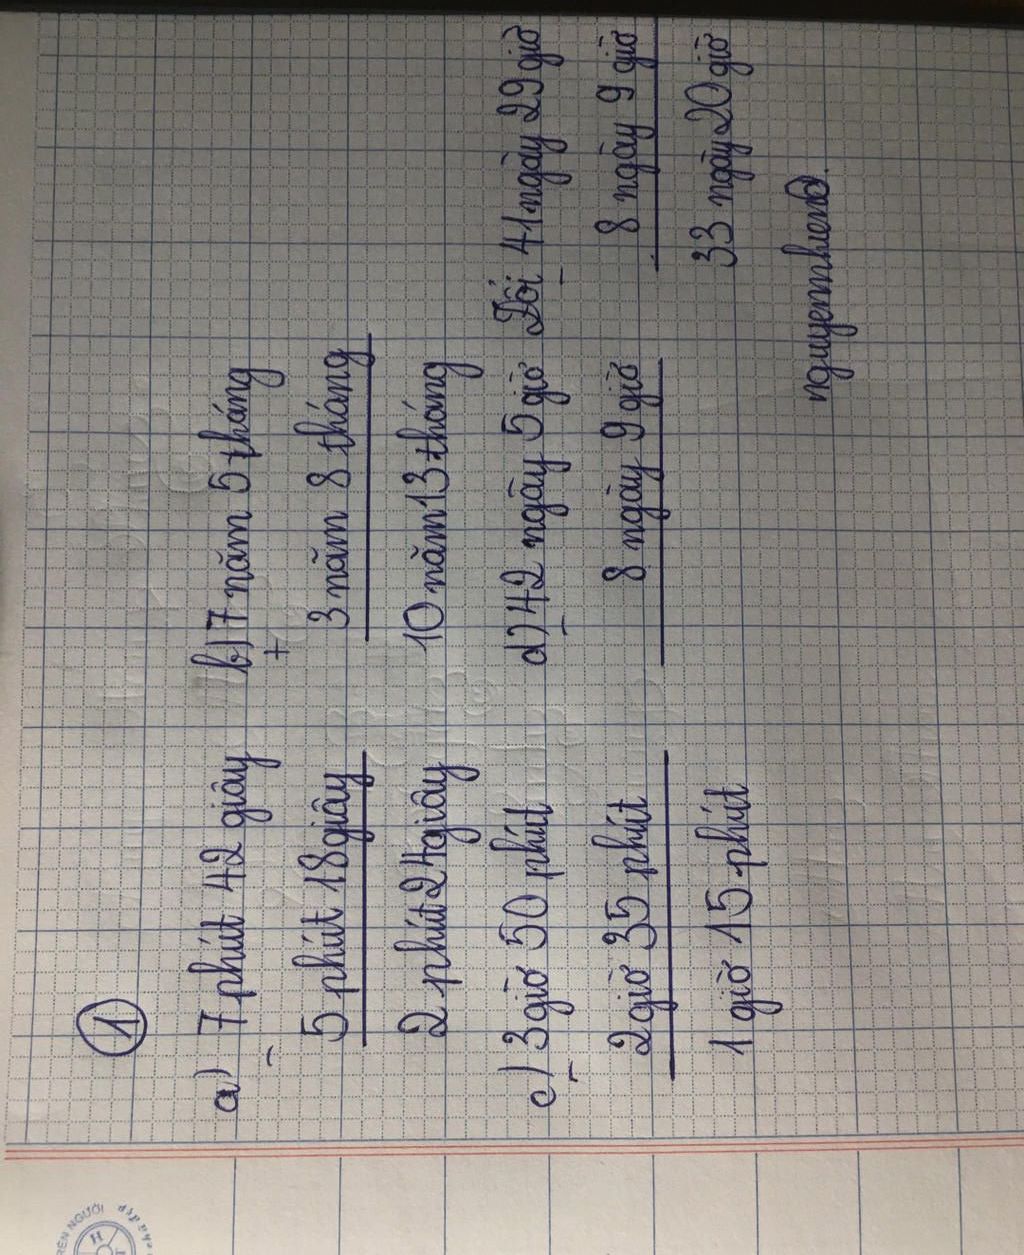 1
a) 7 phút 42 giây
-
5 phút 18 giây
2 phút 24 giây
b) 7 năm 5 tháng
+
3 năm 8 tháng
10 năm 13 tháng
c) 3 giờ 50 phút
-
2 giờ 35 phút
1 giờ 15 phút
d) 42 ngày 5 giờ Đổi 41 ngày 29 giờ
- -
8 ngày 9 giờ 8 ngày 9 giờ
33 ngày 20 giờ
NGƯỜI
H